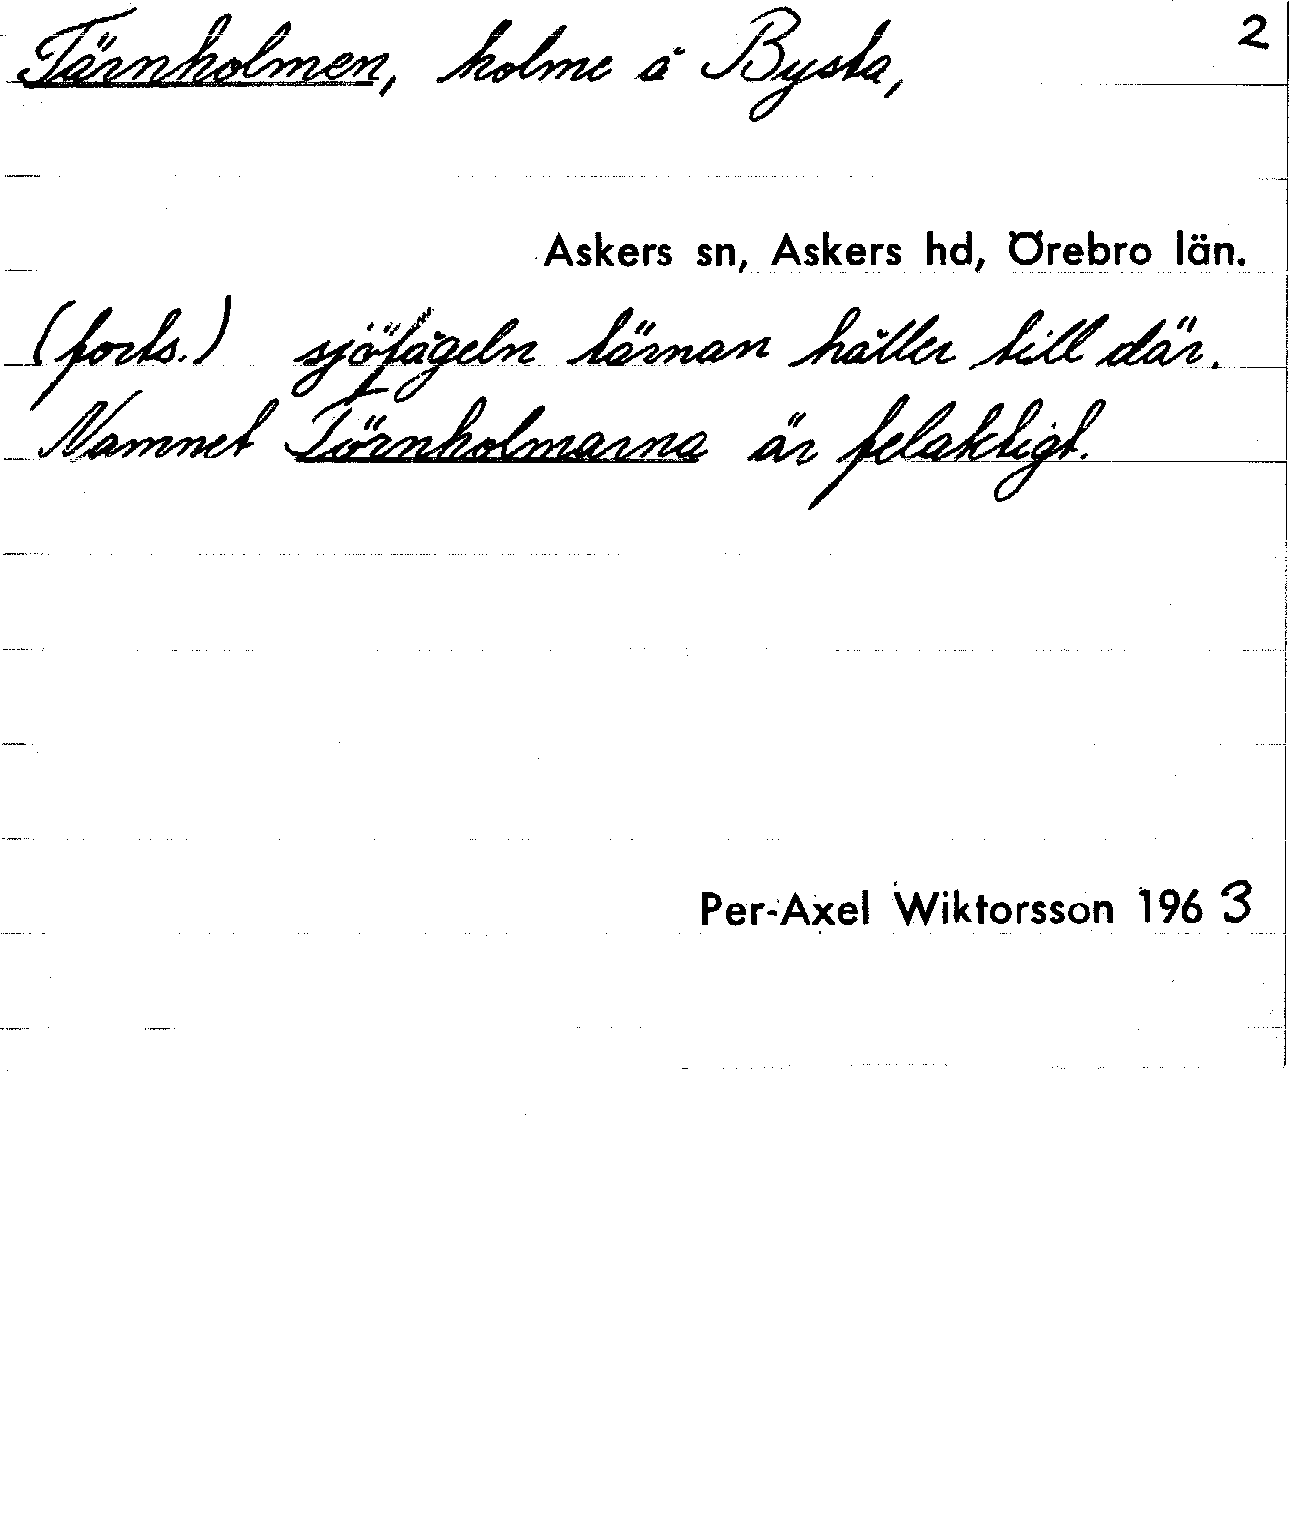 Tärnholmen, holme å Bysta, 2
Askers sn, Askers hd, Örebro län.
(forts.) sjöfågeln tärnan håller till där.
Namnet Törnholmarna är felaktigt.
Per-Axel Wiktorsson 1963